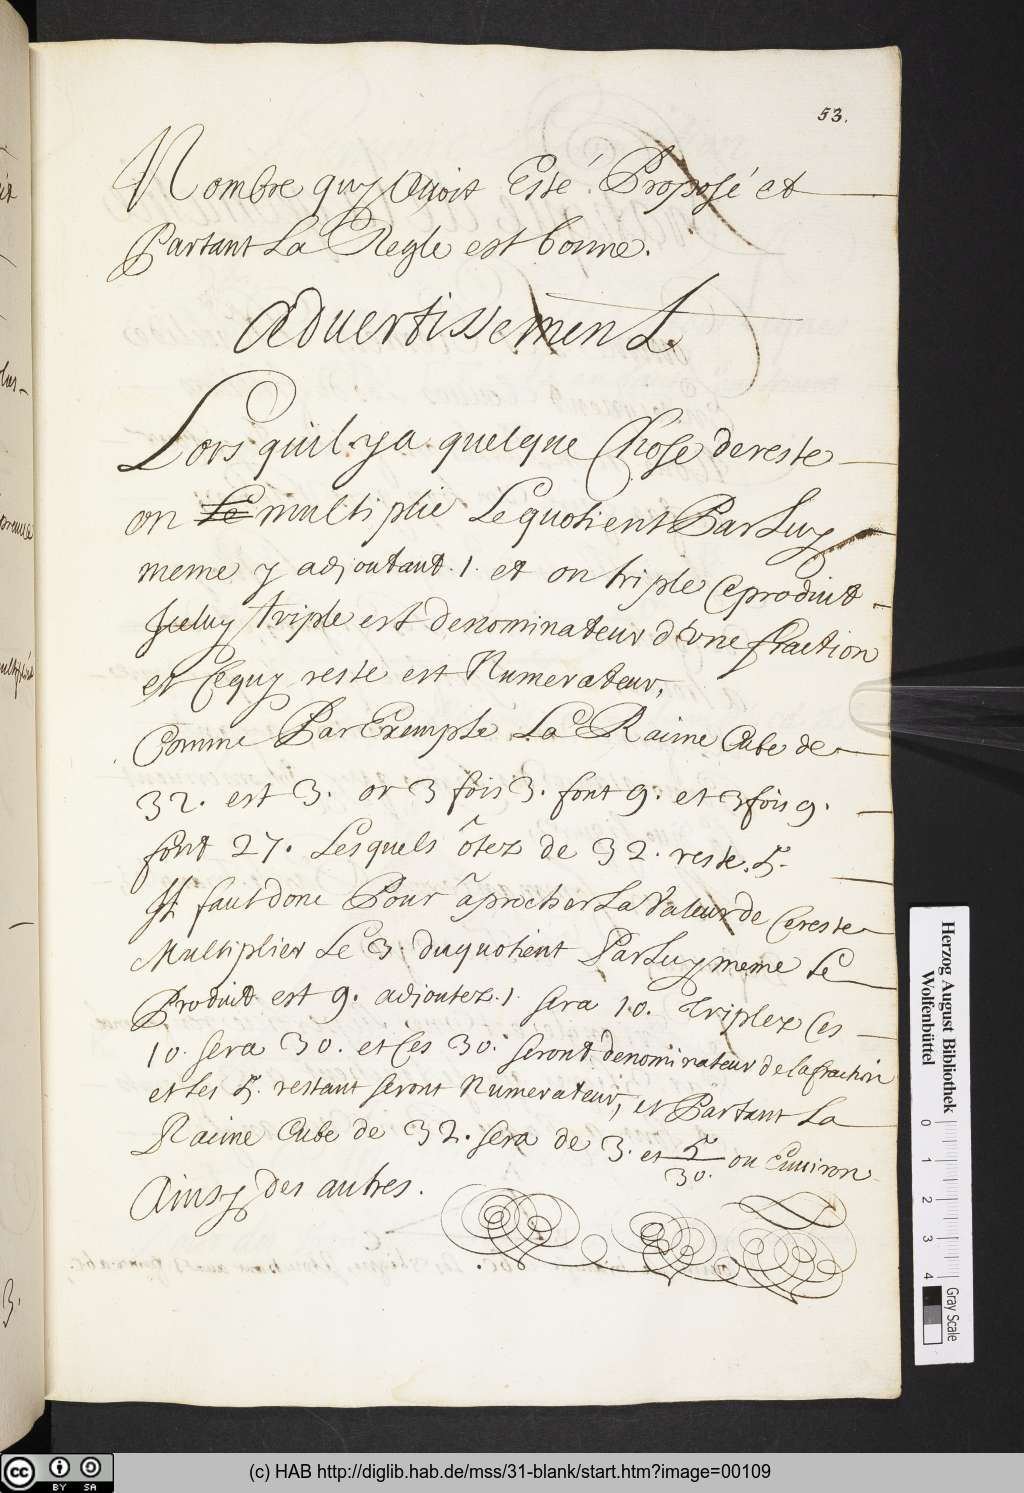 53.
Nombre quy Auoit Esté. Proposé et
Partant La Regle est bonne.
aduertissement.
Lors quil y a quelque Chose de reste
on multiplie Le quotient Par Luy
meme y adjoutant .1. et on triple Ce produit
Iceluy triple est denominateur d'vne fraction
et Ce quy reste est Numerateur,
Comme Par Exemple La Racine Cube de
32. est 3. or 3 fois 3. font 9. et 3 fois 9.
font 27. Lesquels ôtez de 32. reste .5.
Il faut donc Pour aprocher La Valeur de Ce reste
Multiplier Le 3. du quotient Par Luy meme Le
Produit est 9. adjoutez .1. sera 10. Triplez Ces
10. sera 30. et Ces 30. seront denominateur de la fraction
et Les 5. restant seront Numerateur, et Partant La
Racine Cube de 32. sera de 3. et 5/30. ou Enuiron
Ainsy des autres.
Herzog August Bibliothek
Wolfenbüttel
0 1 2 3 4
Gray Scale
cc BY SA
(c) HAB http://diglib.hab.de/mss/31-blank/start.htm?image=00109